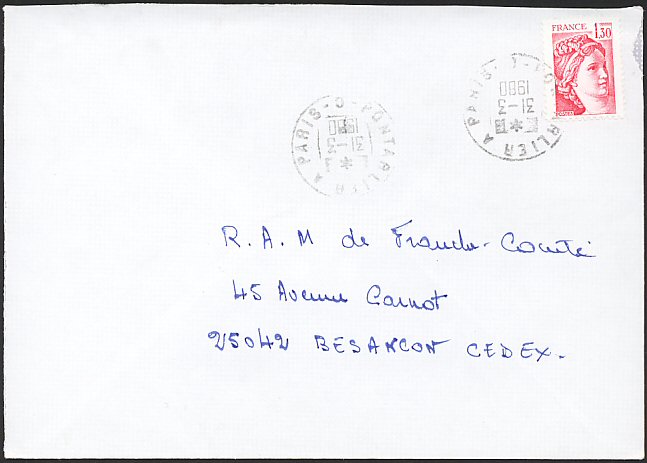 FRANCE
1,30
POSTES
PONTARLIER A PARIS
31-3
1980
PONTARLIER A PARIS
31-3
1980
R.A.M de Franche-Comté
45 Avenue Carnot
25042 BESANCON CEDEX.